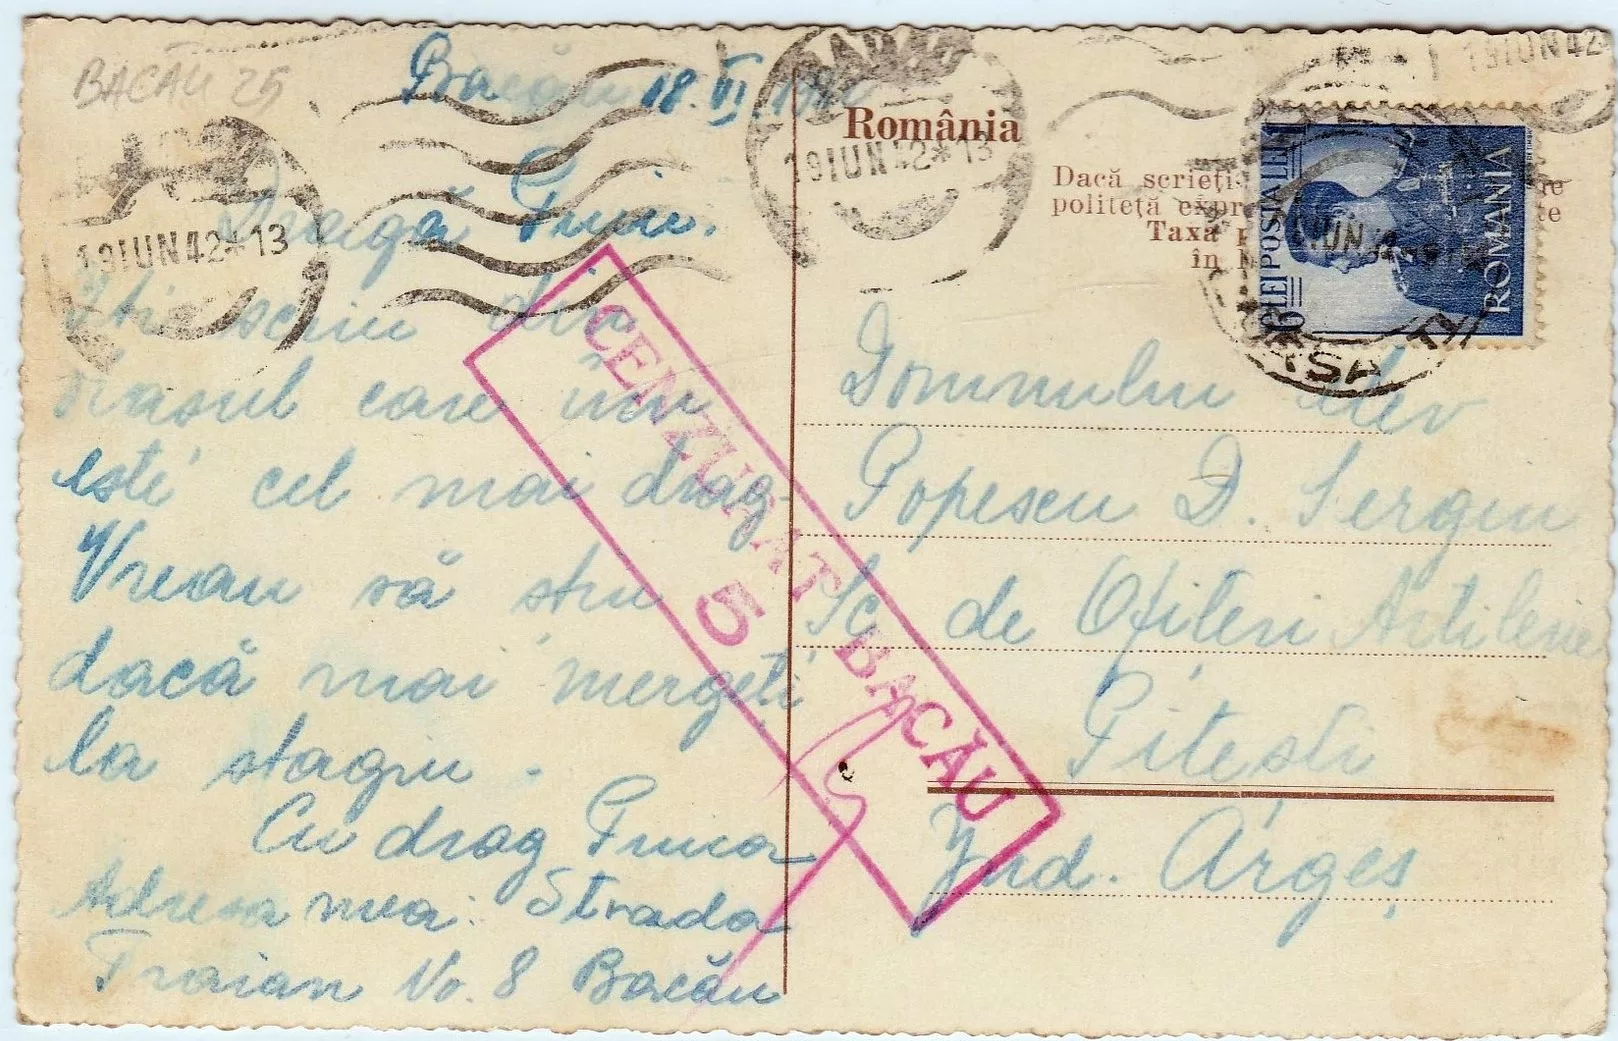 BACAU 25
Bacău 18.VI.
Dragă Puiu.
Îti scriu din
orasul care îmi
este cel mai drag
Vreau să stiu
dacă mai mergeți
la stagiu.
Cu drag
Adresa mea: Strada
Traian No. 8 Bacău
19IUN42*13
19IUN42*13
19IUN42
CENZURAT BACĂU
5
România
Dacă scrieți
politeță
Taxa
în
6 LEI POSTA LEI 6
ROMANIA
Domnului Elev
Popescu D. Sergiu
Sc. de Ofiteri Artilerie
Pitesti
Jud. Argeș